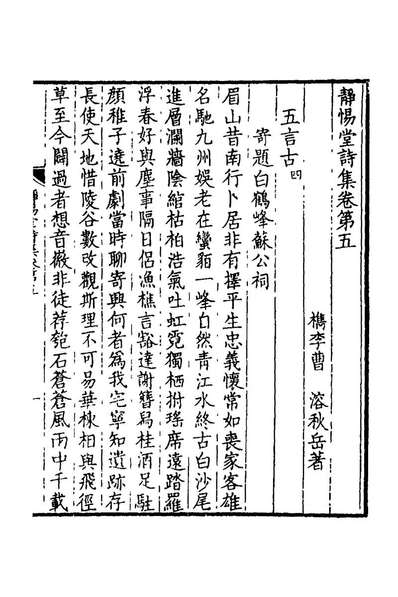 靜惕堂詩集卷第五
檇李曹 溶秋岳著
五言古四
寄題白鶴峰蘇公祠
眉山昔南行卜居非有擇平生忠義懷常如喪家客雄
名馳九州娛老在蠻貊一峰自然青江水終古白沙尾
進層瀾牆陰綰枯柏浩氣吐虹霓獨栖拊瑤席遠踏羅
浮春好與塵事隔日侶漁樵言豁達謝簪舄桂酒足駐
顏稚子遶前劇當時聊寄興何者為我宅寧知遺跡存
長使天地惜陵谷數改觀斯理不可易華棟相與飛徑
草至今闢過者想音徽非徒荐匏石蒼蒼風雨中千載
一